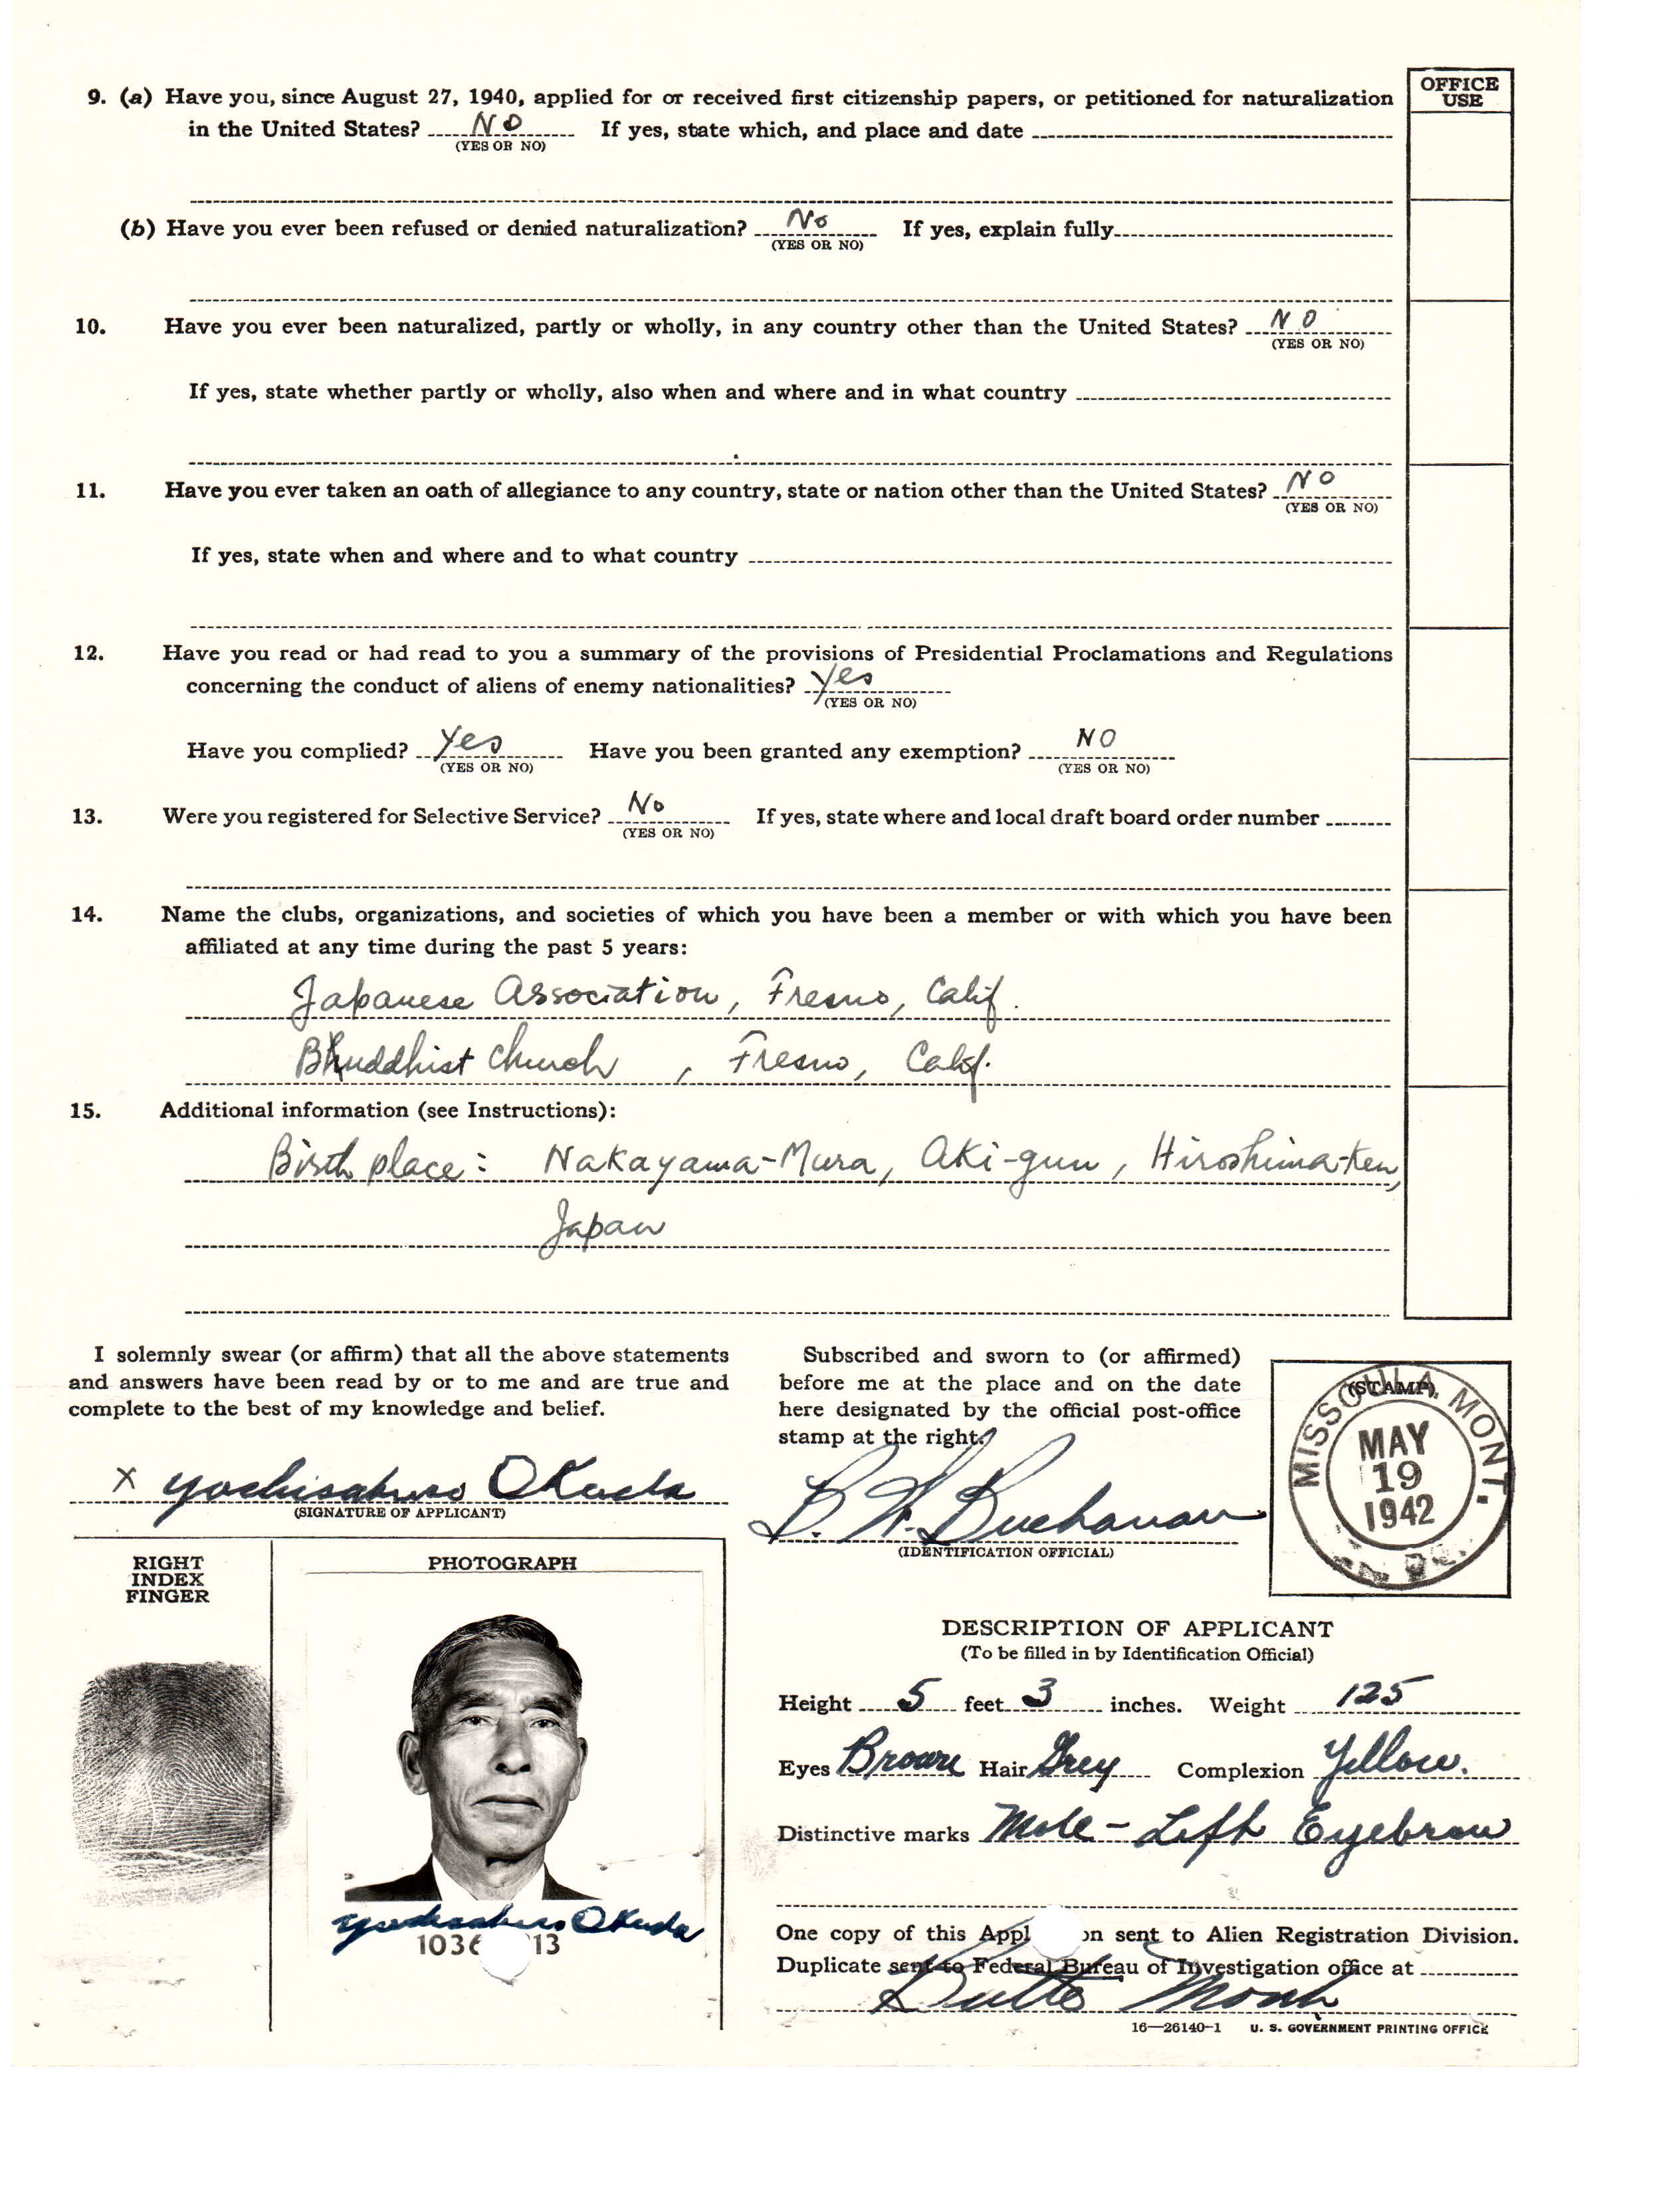 OFFICE
USE
9. (a) Have you, since August 27, 1940, applied for or received first citizenship papers, or petitioned for naturalization
in the United States? No If yes, state which, and place and date
(YES OR NO)
(b) Have you ever been refused or denied naturalization? No If yes, explain fully
(YES OR NO)
10. Have you ever been naturalized, partly or wholly, in any country other than the United States? NO
(YES OR NO)
If yes, state whether partly or wholly, also when and where and in what country
11. Have you ever taken an oath of allegiance to any country, state or nation other than the United States? NO
(YES OR NO)
If yes, state when and where and to what country
12. Have you read or had read to you a summary of the provisions of Presidential Proclamations and Regulations
concerning the conduct of aliens of enemy nationalities? Yes
(YES OR NO)
Have you complied? Yes Have you been granted any exemption? NO
(YES OR NO) (YES OR NO)
13. Were you registered for Selective Service? No If yes, state where and local draft board order number
(YES OR NO)
14. Name the clubs, organizations, and societies of which you have been a member or with which you have been
affiliated at any time during the past 5 years:
Japanese Association, Fresno, Calif.
Bhuddhist Church, Fresno, Calif.
15. Additional information (see Instructions):
Birth place: Nakayama-Mura, Aki-gun, Hiroshima-Ken,
Japan
I solemnly swear (or affirm) that all the above statements
and answers have been read by or to me and are true and
complete to the best of my knowledge and belief.
X Yoshisaburo Okuda
(SIGNATURE OF APPLICANT)
Subscribed and sworn to (or affirmed)
before me at the place and on the date
here designated by the official post-office
stamp at the right.
B. W. Buchanan
(IDENTIFICATION OFFICIAL)
(STAMP)
MISSOULA, MONT.
MAY
19
1942
RIGHT
INDEX
FINGER
PHOTOGRAPH
Yoshisaburo Okuda
1036 13
DESCRIPTION OF APPLICANT
(To be filled in by Identification Official)
Height 5 feet 3 inches. Weight 125
Eyes Brown Hair Grey Complexion Yellow.
Distinctive marks Mole - Left Eyebrow
One copy of this Appl on sent to Alien Registration Division.
Duplicate sent to Federal Bureau of Investigation office at
Butte Mont
16—26140-1 U. S. GOVERNMENT PRINTING OFFICE